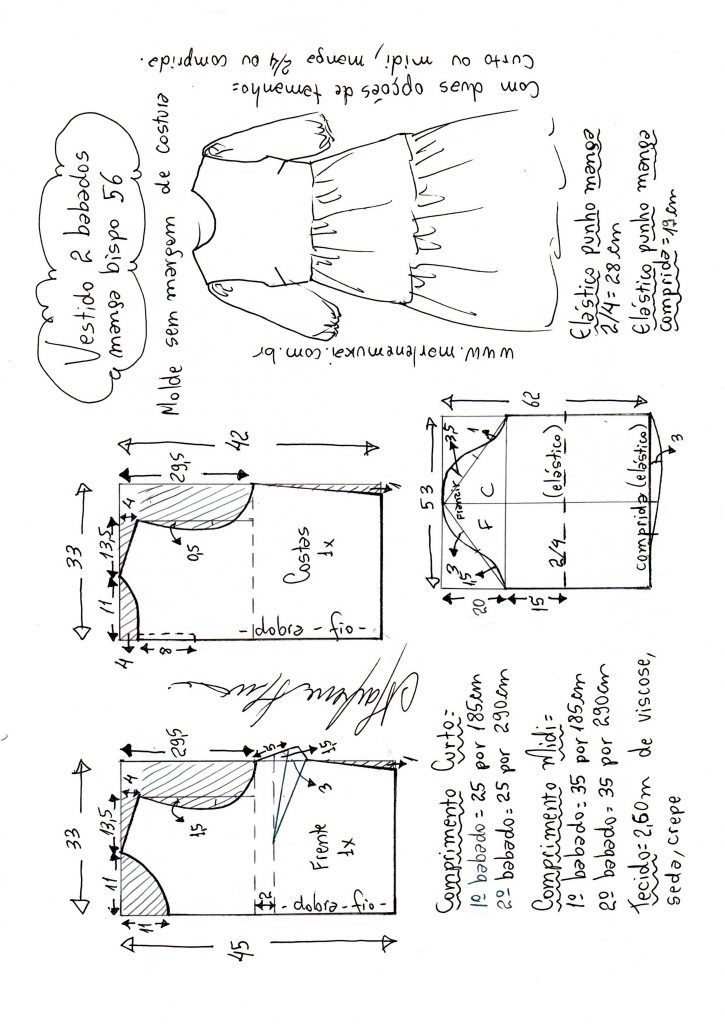 Vestido 2 babados
manga bispo 56
Molde sem margem de costura
Com duas opções de tamanho=
Curto ou midi, manga 2/4 ou comprida.
www.marlenemukai.com.br
Elástico punho manga
2/4 = 28 cm
Elástico punho manga
comprida = 19 cm
33
11
13,5
4
29,5
42
4
8
0,5
Costas
1x
-dobra - fio-
1
53
62
3
1,5
3,5
1
franzir
F
C
20
15
2/4
(elástico)
comprida (elástico)
3
33
11
13,5
4
29,5
11
45
1,5
5
1,5
3
2
Frente
1x
-dobra - fio-
1
Comprimento Curto=
1º babado = 25 por 185cm
2º babado = 25 por 290cm
Comprimento Midi=
1º babado = 35 por 185cm
2º babado = 35 por 290cm
Tecido = 2,60m de viscose,
seda, crepe